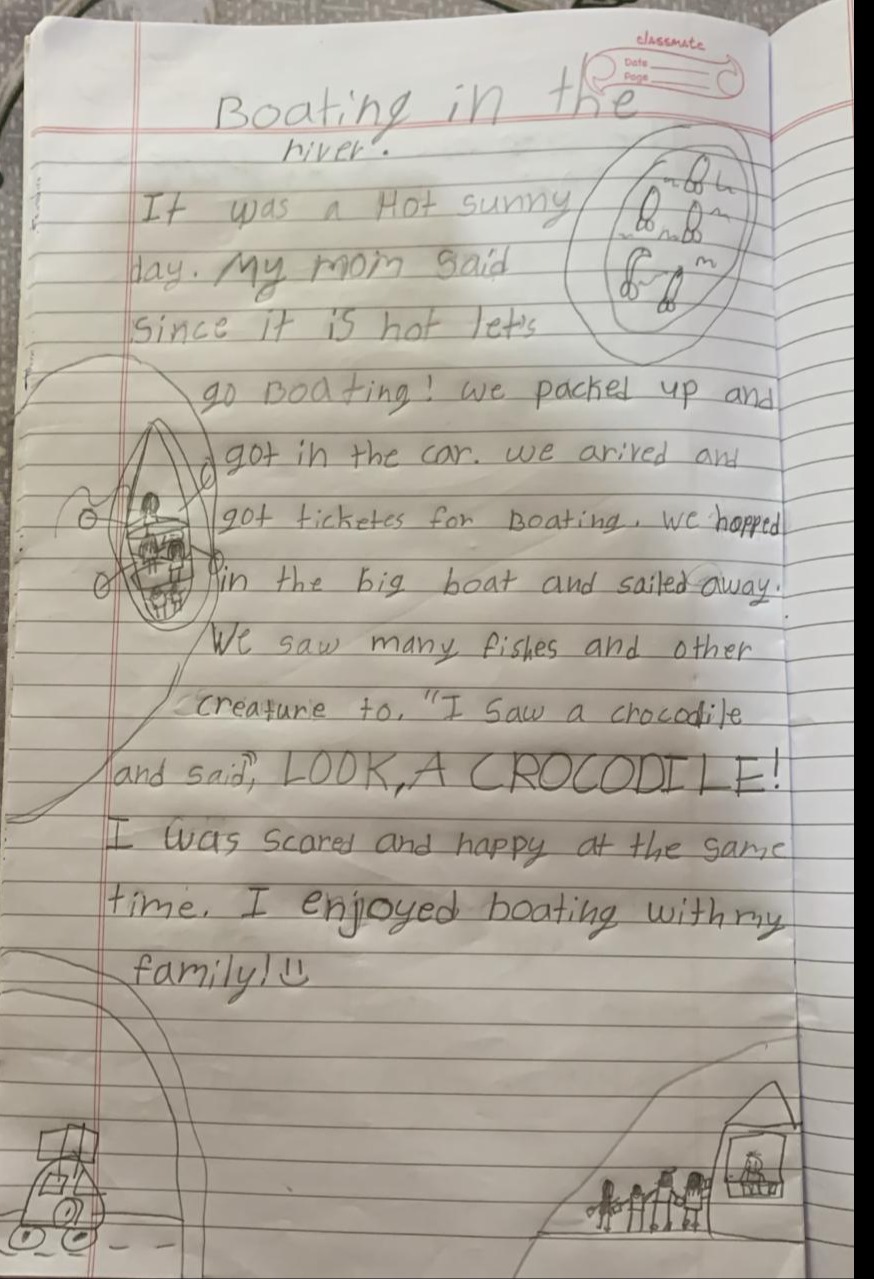 classmate
Date
Page
Boating in the
river.
It was a Hot sunny
day. My mom said
since it is hot let's
go Boating! we packed up and
got in the car. we arived and
got ticketes for Boating. We hopped
in the big boat and sailed away.
We saw many fishes and other
creature to. "I saw a crocodile
and said", LOOK, A CROCODILE!
I was scared and happy at the same
time. I enjoyed boating with my
family! :)